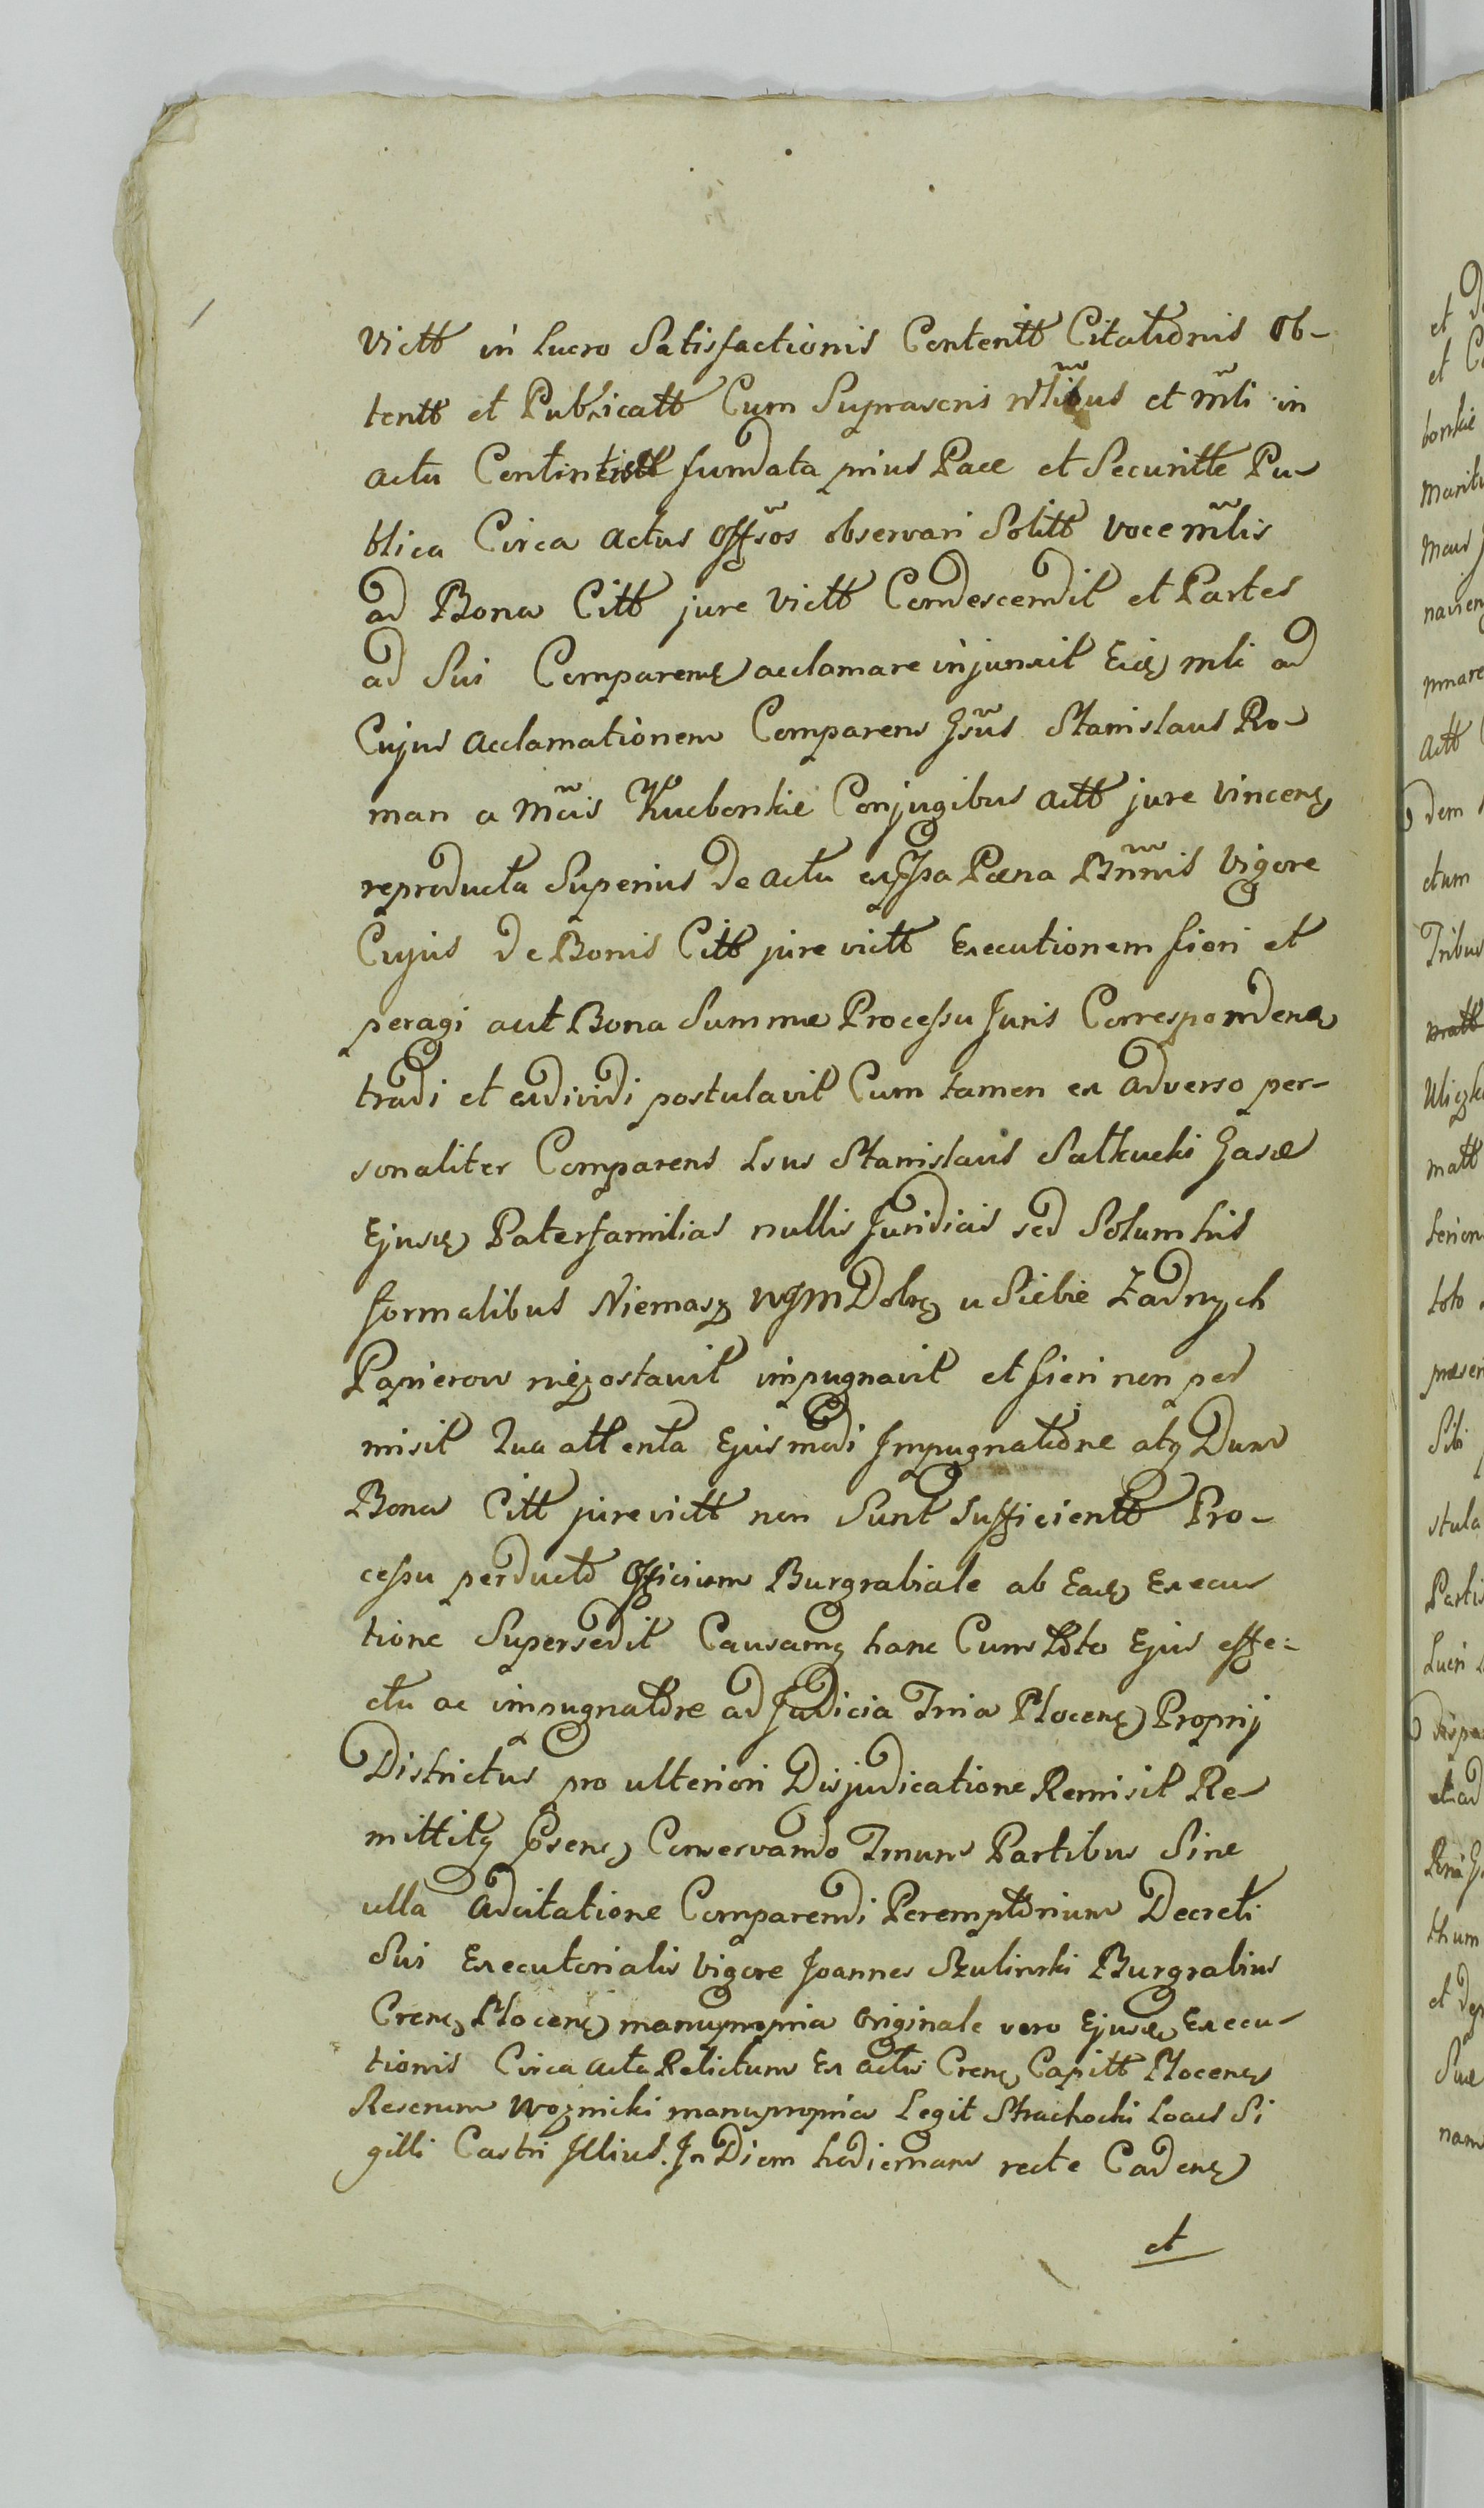 Victt in lucro Satisfactionis Contentt Citationis Ob-
tentt et Publicatt Cum Suprascris nlibus et mli in
actu Contintibtt fundata prius Pace et Securitte Pu-
blica Circa actus offsos observari Solitt voce mlis
ad Bona Citt jure Victt Condescendit et Partes
ad Sui Comparens acclamare injunxit Eid mli ad
Cujus acclamationem Comparens Gsus Stanislaus Ro-
man a Mcis Kucborskie Conjugibus actt jure vincens
reproducta Superius de actu expssa Pæna Bnnis Vigore
Cujus de Bonis Citt jure victt Executionem fieri et
peragi aut Bona Summæ Processu Juris Correspondena
tradi et exdividi postulavit Cum tamen ex adverso per-
sonaliter Comparens Gsus Stanislaus Salkucki Gasæ
Ejusd Paterfamilias nullis Juridicis sed Solum his
formalibus Niemasz WJM Dobr u Siebie Zadnych
Papierow niezostawil impugnavit et fieri non per
misit Qua attenta Ejusmodi Impugnatione atq Dum
Bona Citt jure victt non Sunt Sufficientt Pro-
cessu perducto Officium Burgrabiale ab Ead Execu
tione Supersedit Causamq hanc Cum toto Ejus effe-
ctu ac impugnatione ad Judicia Tria Plocens Proprij
Districtus pro ulteriori Disjudicatione Remisit Re
mittitq Psens Conservando Tmum Partibus Sine
ulla adcitatione Comparendi Peremptorium Decreti
Sui Executorialis Vigore Joannes Szulinski Burgrabius
Crens Plocens manupropria Originale vero Ejusd Execu-
tionis Circa acta Relictum Ex actis Crens Capitt Plocens
Rescrum Woznicki manupropria Legit Strachocki Locus Si
gilli Castri Illius. In Diem hodiernam recte Cadens
et